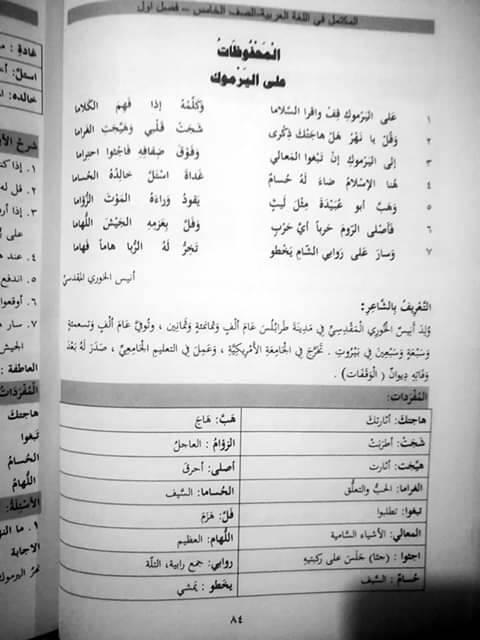 المكتمل في اللغة العربية-الصف الخامس – فصل أول
المَحْفُوظَاتُ
على اليَرْموك
١ عَلى اليَرْموكِ قِفْ واقرا السَّلاما وَكَلِّمْهُ إذا فَهِمَ الكَلاما
٢ وَقُلْ يا نَهْرُ هَلْ هاجَتْكَ ذِكْرى شَجَتْ قَلْبي وَهَيَّجَتِ الغَراما
٣ إلى اليَرْموكِ إنْ تَبْغوا المَعالي وَفَوْقَ ضِفافِهِ فَاجْثوا احتِراما
٤ هُنا الإسْلامُ ضاءَ لَهُ حُسامٌ غَداةَ اسْتَلَّ خالِدُهُ الحُساما
٥ وَهَبَّ أبو عُبَيْدَةَ مِثْلَ لَيْثٍ يَقودُ وَراءَهُ المَوْتَ الزُّؤاما
٦ فَأصْلى الرّومَ حَرباً أيَّ حَرْبٍ وَفَلَّ بِعَزمِهِ الجَيْشَ اللُّهاما
٧ وَسارَ عَلى رَوابي الشّامِ يَخْطو تَخِرُّ لَهُ الرُّبا هاماً فَهاما
أنيس الخوري المقدسيّ
التَّعْريفُ بِالشّاعِرِ:
وُلِدَ أَنيسُ الْخُوريّ المَقْدِسِيُّ في مَدينَةِ طَرابُلُسَ عَامَ أَلْفٍ وَثَمانمئةٍ وَثَمانين ، وتُوفّيَ عَامَ أَلْفٍ وَتسعمئةٍ
وَسَبْعَةٍ وَسَبْعينَ في بَيْروتَ . تَخَرَّجَ في الجامَعَةِ الأَمْريكِيَّةِ ، وَعَمِلَ في التعليمِ الجامعيِّ ، صَدَرَ لَهُ بَعْدَ
وَفاتِهِ ديوانُ ( الوَقَفات ) .
المُفْرَدات:
هاجتكَ: أثارتكَ هَبَّ: هَاجَ
شَجَتْ: أطرَبَتْ الزؤام: العاجلُ
هيَّجَت: أثارت أصلى: أحرقَ
الغراما: الحبُّ والتعلُّق الحُساما: السَّيف
تبغوا: تطلبوا فَلَّ: هَزَمَ
المَعالي: الأشياء السَّامية اللُّهام: العظيم
اجثوا : (جثا) جَلَسَ على ركبتيهِ روابي: جمع رابية، التلّة
حُسامٌ: السَّيف يخطو : يَمشي
٨٤
شرح الأ
١. إذا كن
٢. قل له
٣. إذا أر
على
٤. عند ه
٥. اندفع
٦. أوقعوا
٧. سار
الجيش
العاطفة :
المُفْرَدات
هاجتك
تبغوا
الحُسامُ
اللُّهام
الأسْئِلَة:
١. ما الن
الاجابة
نهرُ اليرموك